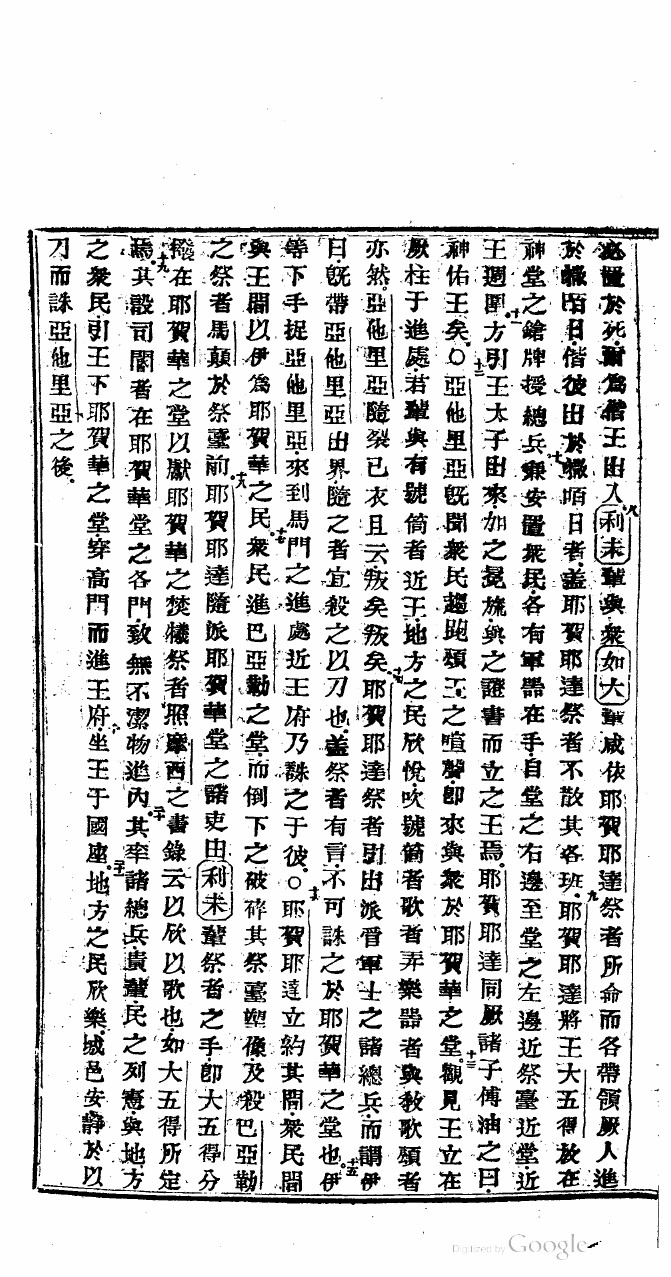 必置於死爾為偕王出入八利未輩與衆如大輩咸依耶賀耶達祭者所命而各帶領厥人進
於嘁咟日偕彼出於嘁咟日者蓋耶賀耶達祭者不散其各班九耶賀耶達將王大五得放在
神堂之鎗牌授總兵十兼安置衆民各有軍器在手自堂之右邊至堂之左邊近祭臺近堂近
王週圍十一方引王太子出來加之冕旒與之證書而立之王焉耶賀耶達同厥諸子傅油之曰
神佑王矣○十二亞他里亞既聞衆民趨跑頌王之喧聲即來與衆於耶賀華之堂十三觀見王立在
厥柱于進處君輩與有號筒者近王地方之民欣悅吹號筒者歌者弄樂器者與教歌頌者
亦然亞他里亞隨裂己衣且云叛矣叛矣十四耶賀耶達祭者引出派督軍士之諸總兵而謂伊
曰既帶亞他里亞出界隨之者宜殺之以刀也蓋祭者有言不可誅之於耶賀華之堂也十五伊
等下手捉亞他里亞來到馬門之進處近王府乃誅之于彼○十六耶賀耶達立約其間衆民間
與王間以伊為耶賀華之民十七衆民進巴亞勒之堂而倒下之破碎其祭臺塑像及殺巴亞勒
之祭者馬顛於祭臺前十八耶賀耶達隨派耶賀華堂之諸吏由利未輩祭者之手即大五得分
撥在耶賀華之堂以獻耶賀華之焚犧祭者照摩西之書錄云以欣以歌也如大五得所定
焉十九其設司閽者在耶賀華堂之各門致無不潔物進內二十其率諸總兵貴輩民之列憲與地方
之衆民引王下耶賀華之堂穿高門而進王府坐王于國座二十一地方之民欣樂城邑安靜於以
刀而誅亞他里亞之後
Digitized by Google